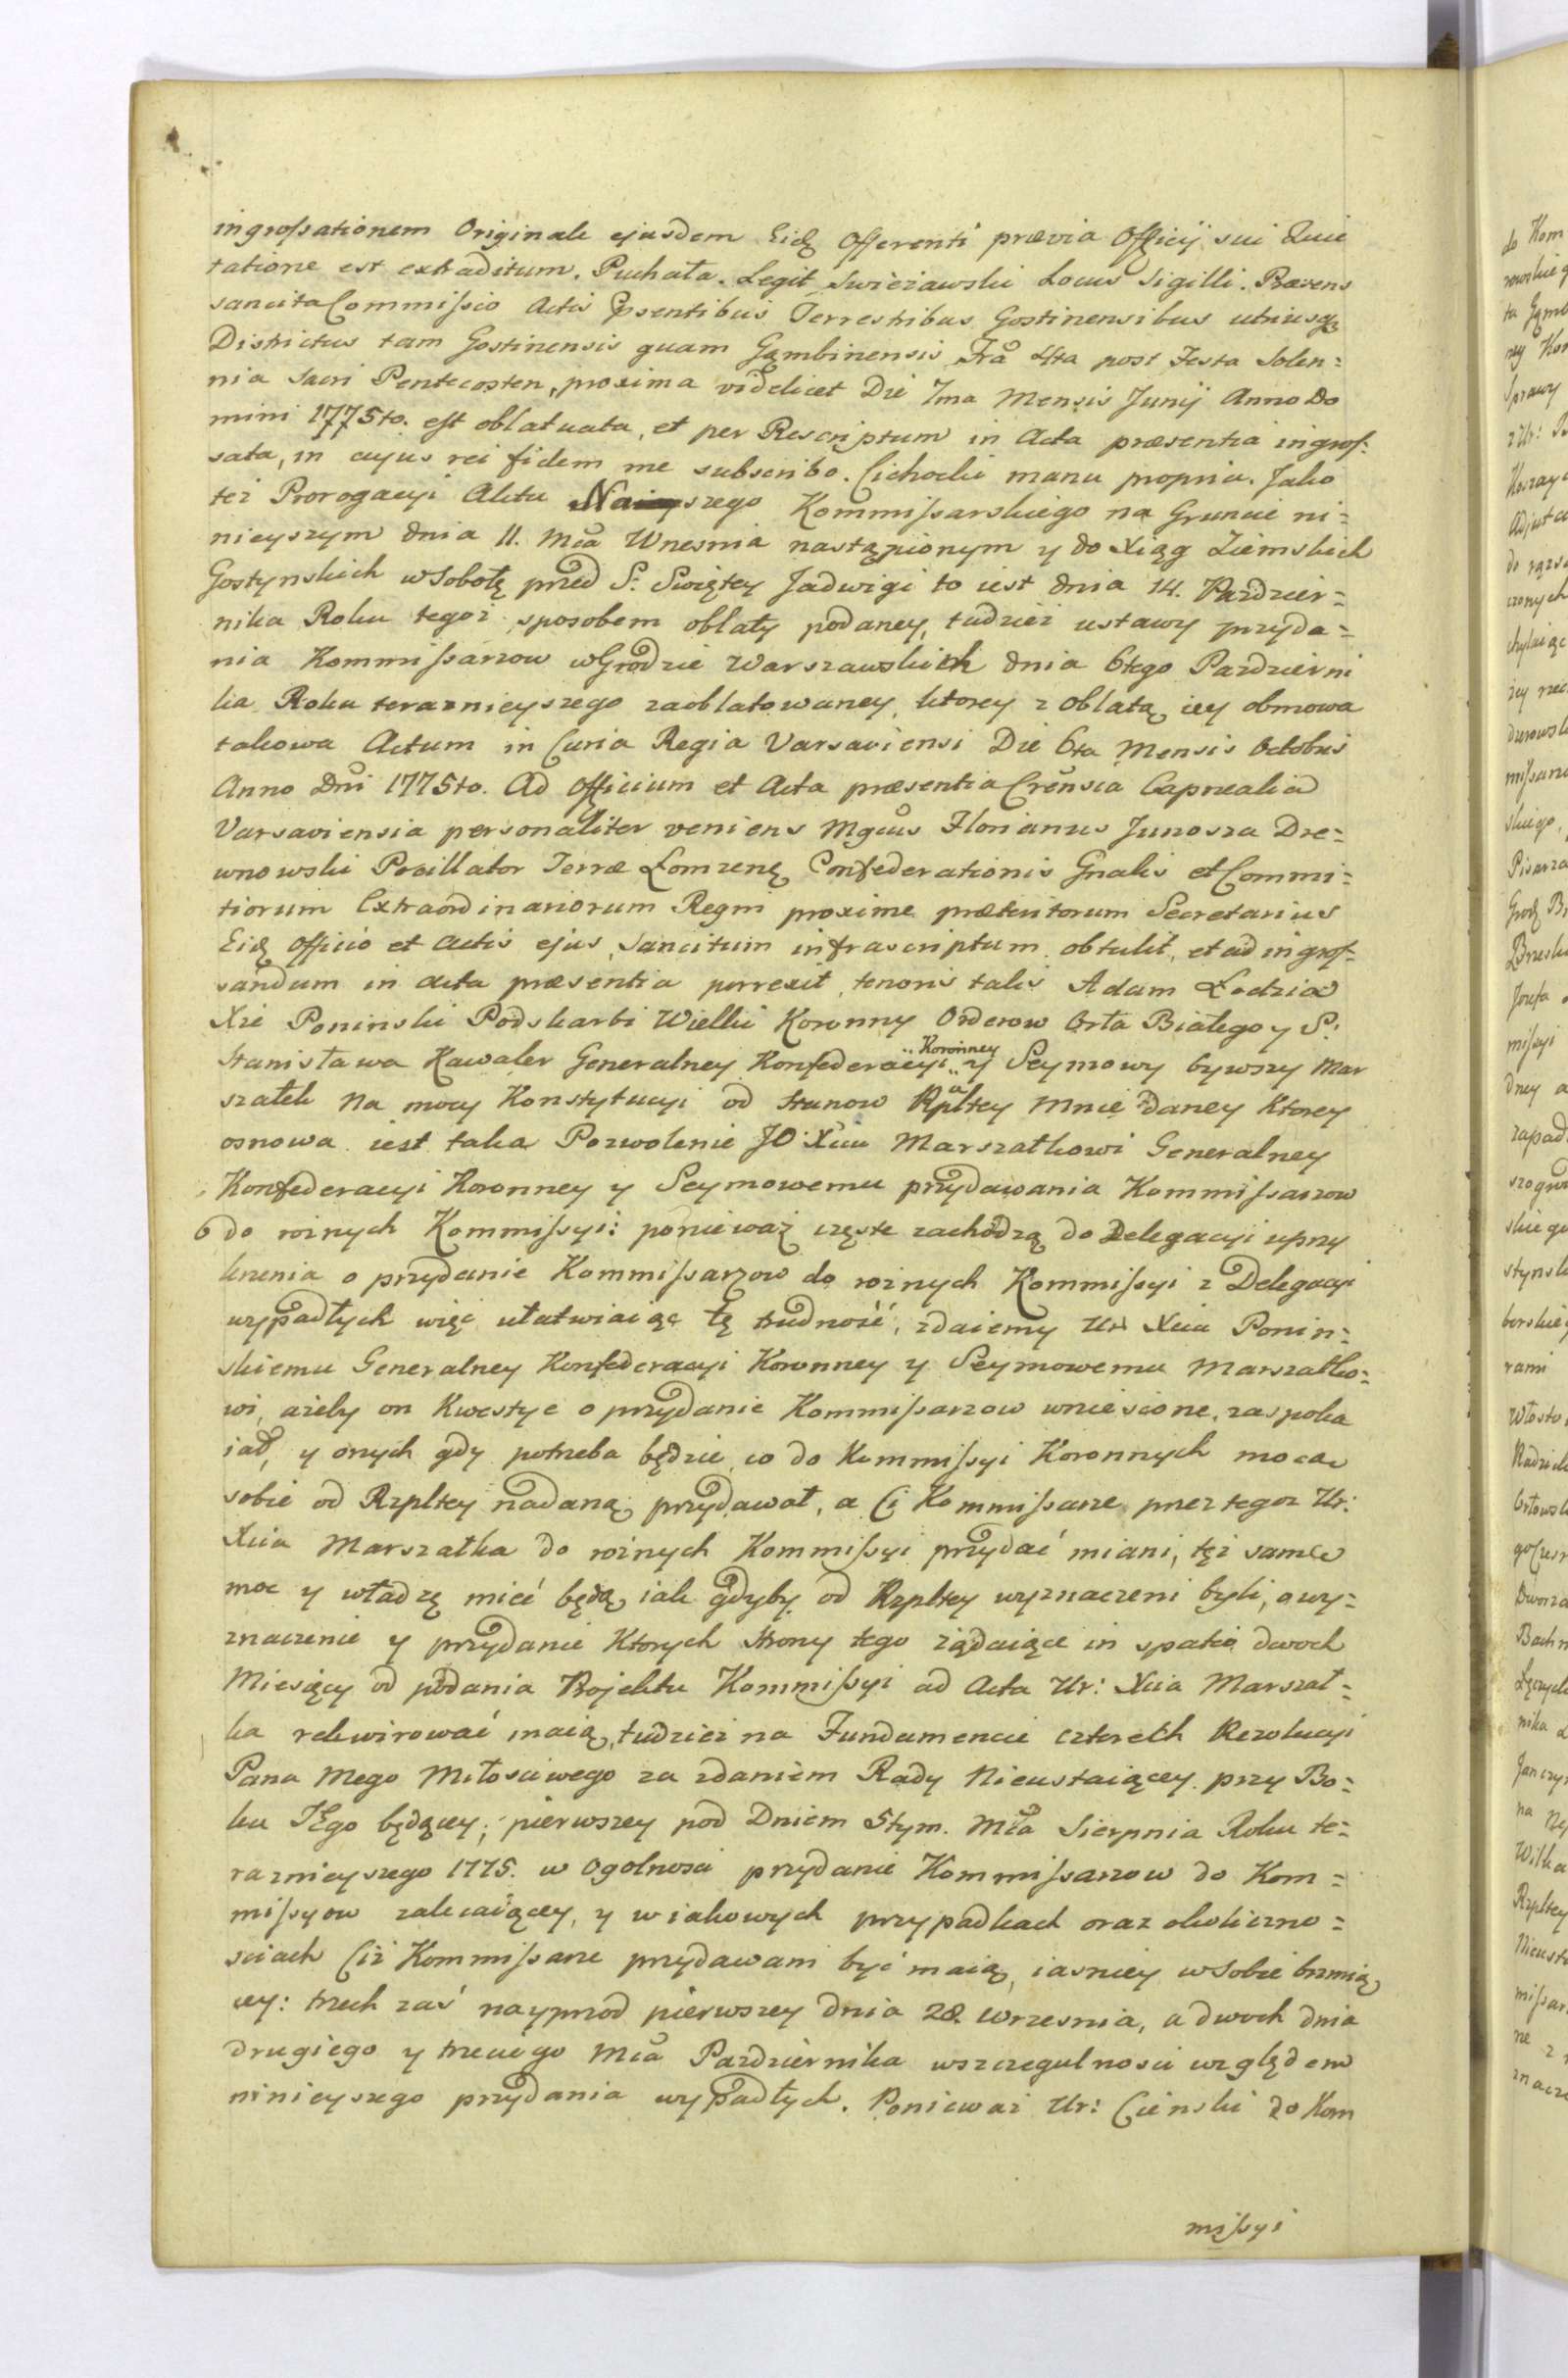 ingrossationem Originale ejusdem Eidę Offerenti prævia Officij sui Quie
tatione est extraditum. Puchała. Legit Swieżawski Locus Sigilli. Præsens
sancita Commissio Actis Psentibus Terrestribus Gostinensibus utriusqę
Districtus tam Gostinensis quam Gąmbinensis Fra 4ta post Festa Solen=
nia Sacri Pentecosten, proxima videlicet Die 7ma Mensis Junij Anno Do
mini 1775to. est oblatuata, et per Rescriptum in Acta præsentia ingros=
sata, in cujus rei fidem me subscribo. Cichocki manu propria. Jako
też Prorogacyi Aktu szego Kommissarskiego na Gruncie ni=
nieyszym dnia 11. Mca Wrzesnia nastąpionym y do Xiąg Ziemskich
Gostynskich w Sobotę przed S. Swiętey Jadwigi to iest dnia 14. Pazdzier=
nika Roku tegoż sposobem oblaty podaney, tudzież ustawy przyda=
nia Kommissarzow w Grodzie Warszawskich dnia 6tego Pazdzierni
ka Roku teraznieyszego zaoblatowaney, ktorey z oblatą iey obmowa
takowa Actum in Curia Regia Varsaviensi Die 6ta Mensis Octobris
Anno Dni 1775to. Ad Officium et Acta præsentia Crensia Capnealia
Varsaviensia personaliter veniens Mgcus Florianus Junosza Dre=
wnowski Pocillator Terræ Łomzenę Confederationis Gnalis et Commi=
tiorum Extraordinariorum Regni proxime præteritorum Secretarius
Eidę Officio et Actis ejus, Sancitum infrascriptum obtulit, et ad ingros=
sandum in acta præsentia porrexit, tenoris talis Adam Łodzia
Xże Poninski Podskarbi Wielki Koronny Orderow Orła Białego y S:
Stanisława Kawaler Generalney Konfederacyi Koronney y Seymowy bywszy Mar
szałek Na mocy Konstytucyi od Stanow Rpltey Mnie daney Ktorey
osnowa iest taka Pozwolenie JO Xciu Marszałkowi Generalney
Konfederacyi Koronney y Seymowemu przydawania Kommissarzow
do roznych Kommissyi: ponieważ częste zachodzą do Delegacyi uprzy
krzenia o przydanie Kommissarzow do roznych Kommissyi z Delegacyi
wypadłych więc ułatwiaiąc tę trudność, zdaiemy Ur: Xcia Ponin=
skiemu Generalney Konfederacyi Koronney y Seymowemu Marszałko=
wi, ażeby on Kwestye o przydanie Kommissarzow wniesione, zaspoka
iał, y onych gdy potrzeba będzie co do Kommissyi Koronnych mocą
sobie od Rzpltey nadaną przydawał, a Ci Kommissarze przez tegoz Ur:
Xcia Marszałka do roznych Kommissyi przydać miani, też samę
moc y władzę mieć będą, iak gdyby od Rzpltey wyznaczeni byli, o wy=
znaczenie y przydanie Ktorych Strony tego żądaiące in spatio dwoch
Miesięcy od podania Projektu Kommissyi ad Acta Ur: Xcia Marszał=
ka rekwirować maią, tudzież na Fundamencie czterech Rezolucyi
Pana Mego Miłosciwego za zdaniem Rady Nieustaiącey przy Bo=
ku JEgo będącey; pierwszey pod Dniem 5tym. Mca Sierpnia Roku te=
raznieyszego 1775. w Ogolnosci przydanie Kommissarzow do Kom=
missyow zalecaiącey, y w iakowych przypadkach oraz okoliczno=
sciach Ciż Kommissarze przydawani być maią, iasniey w Sobie brzmią
cey: trzech zaś nayprzod pierwszey dnia 28. Wrzesnia, a dwoch dnia
drugiego y trzeciego Mca Pazdziernika wszczegulnosci względem
ninieyszego przydania wypadłych. Ponieważ Ur: Cienski do Kom
missyi